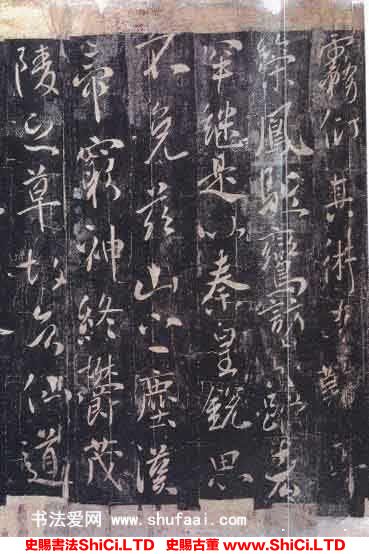 霧 其術
鳳 鸞
罕繼是以秦皇銳思
不免 山之塵漢
帝窮神終鬱茂
陵之草故知仙道
书法爱网 www.shufaai.com
史賜書法ShiCi.LTD 史賜古董 www.ShiCi.LTD